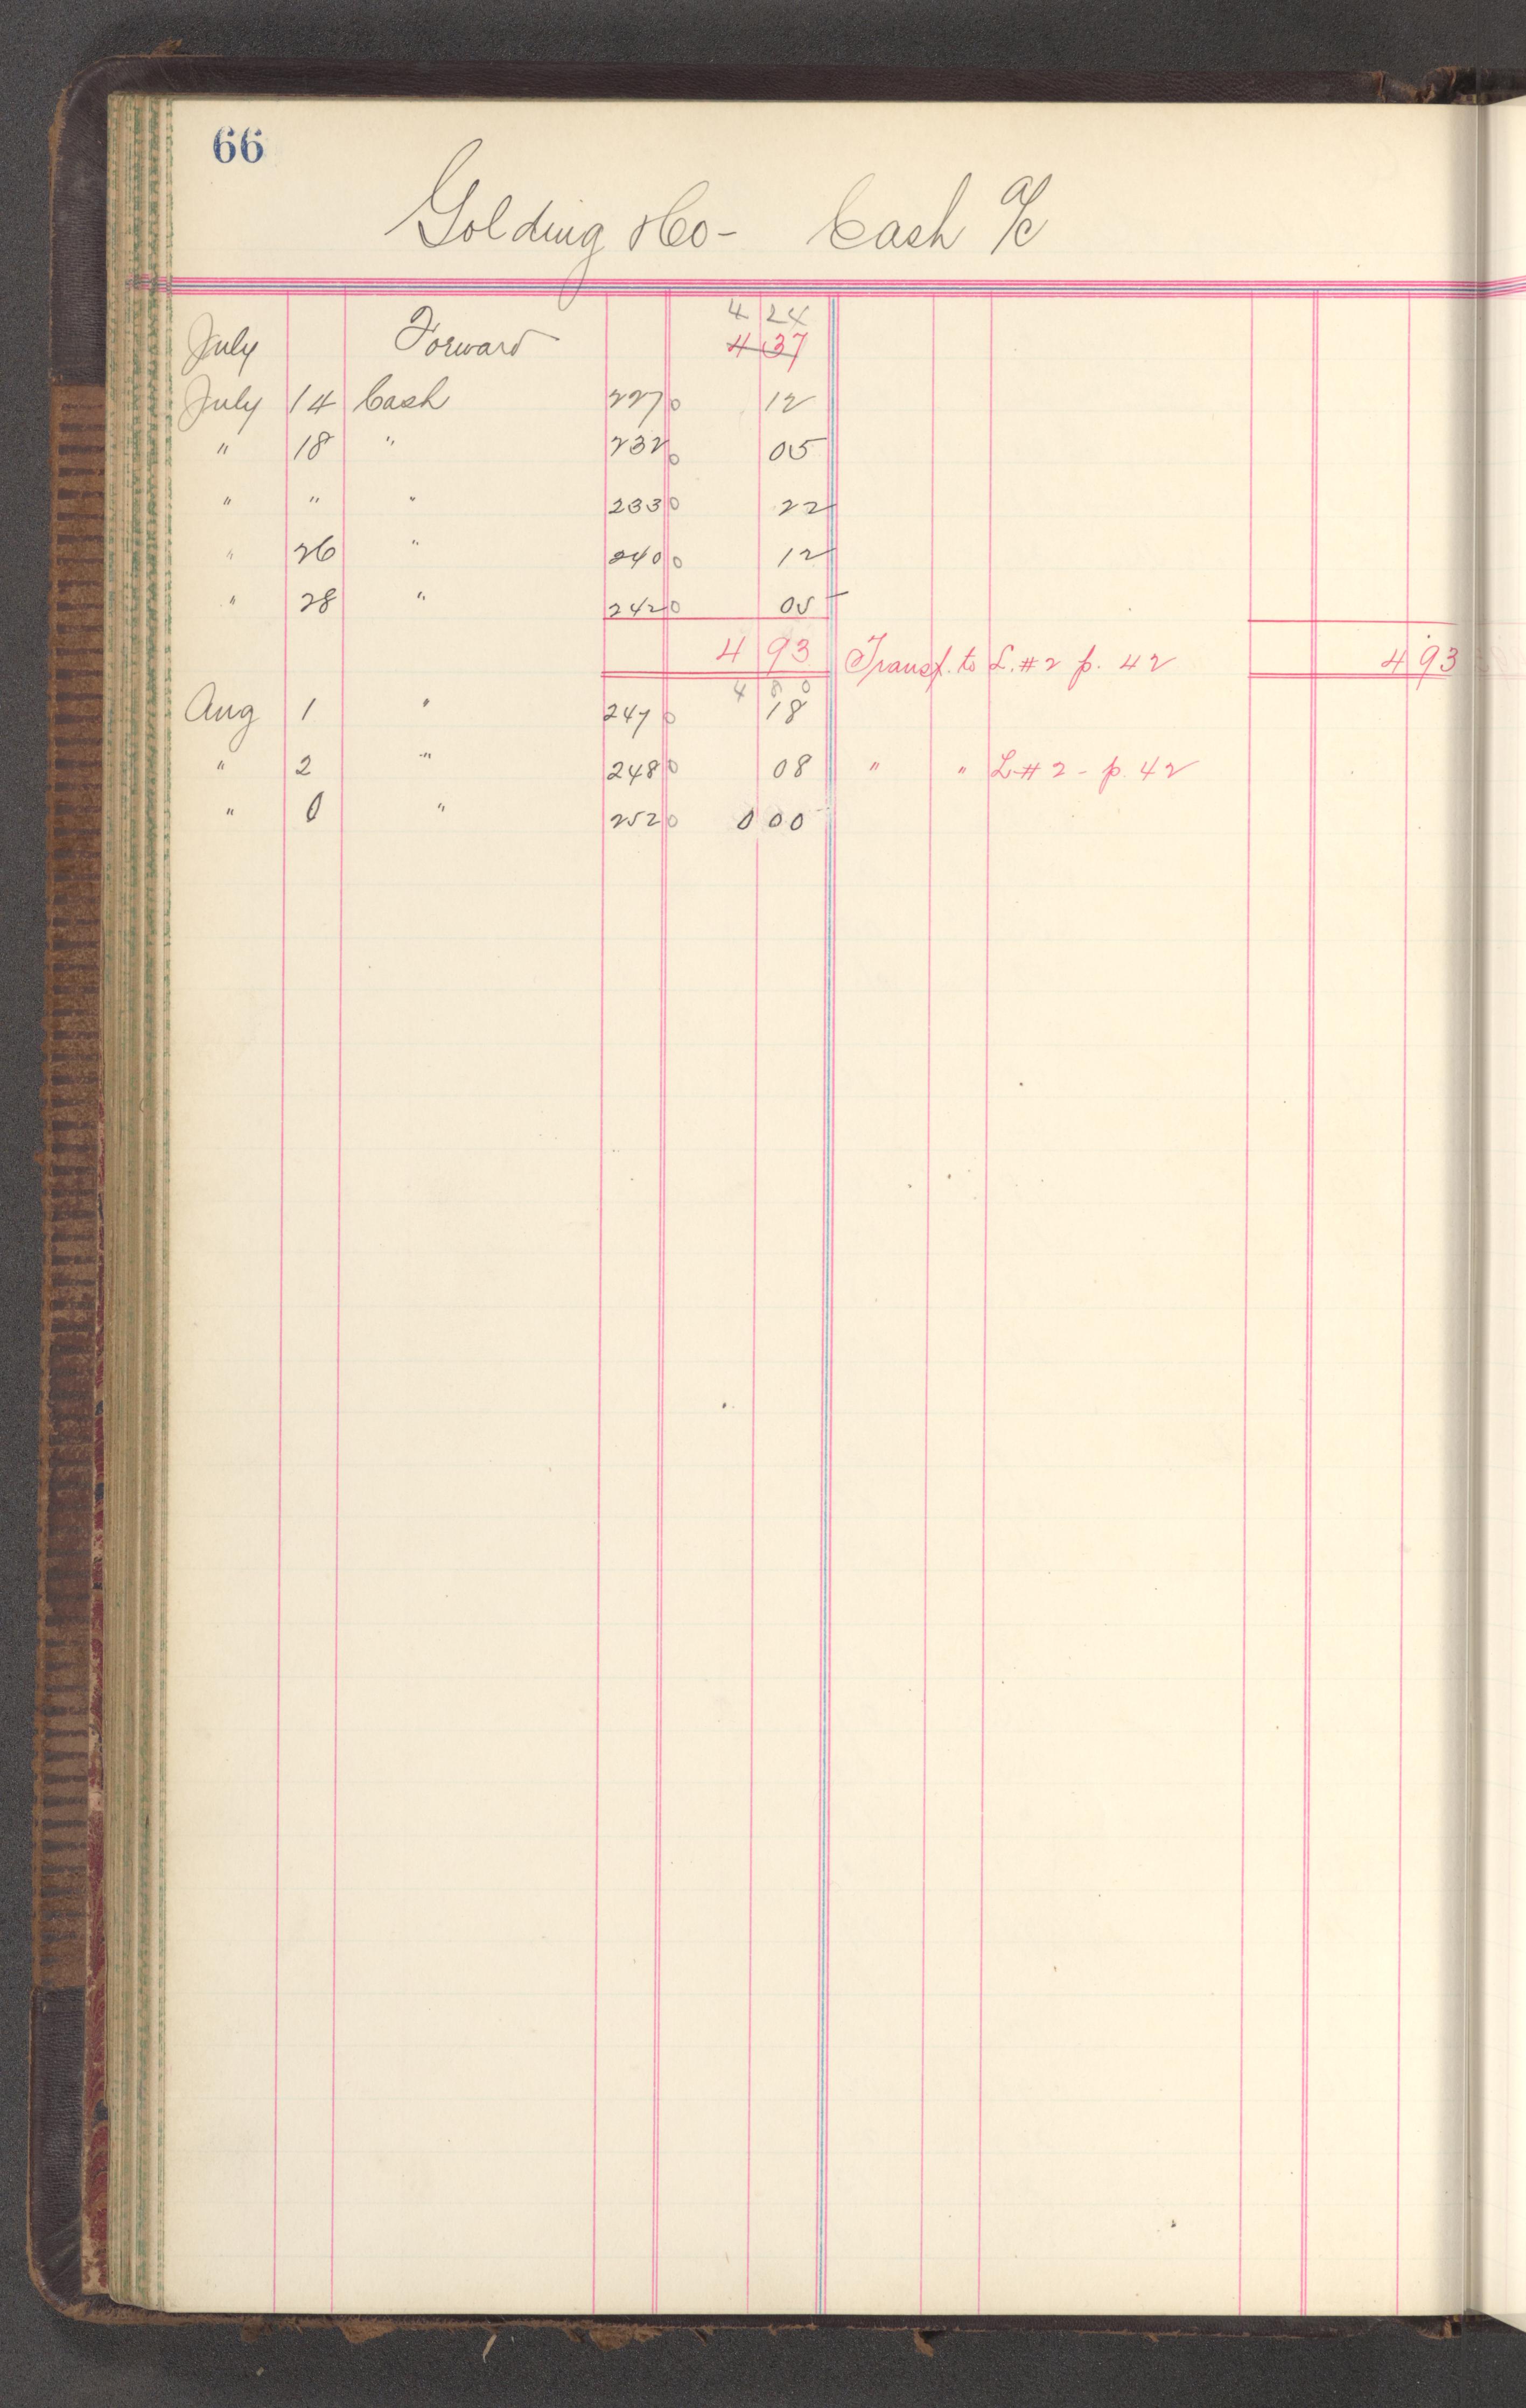 66
Golding & Co - Cash a/c
4 24
July Forward 4 37
July 14 Cash 227 0 12
" 18 " 232 0 05
" " " 233 0 22
" 26 " 240 0 12
" 28 " 242 0 05
4 93 Transf. to L. #2 p. 42 4 93
4 80
Aug 1 " 247 0 18
" 2 " 248 0 08 " " L #2 - p. 42
" 0 " 252 0 0 00